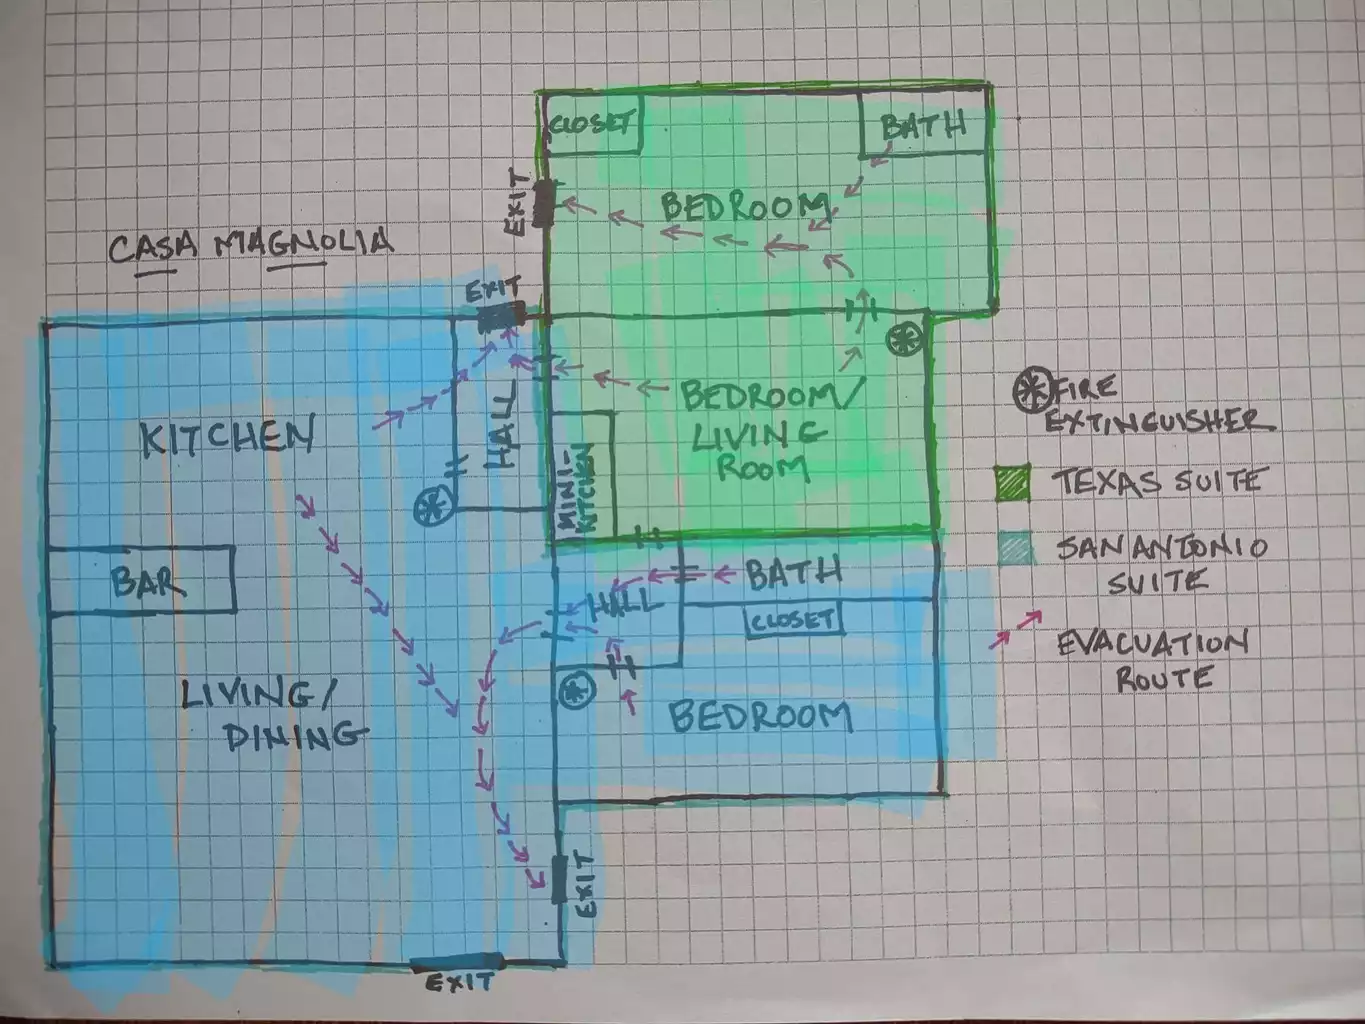 CLOSET
BATH
EXIT
BEDROOM
CASA MAGNOLIA
EXIT
KITCHEN
HALL
BEDROOM/
LIVING
ROOM
MINI-
KITCHEN
FIRE
EXTINGUISHER
TEXAS SUITE
SAN ANTONIO
SUITE
EVACUATION
ROUTE
BAR
HALL
BATH
CLOSET
LIVING/
DINING
BEDROOM
EXIT
EXIT